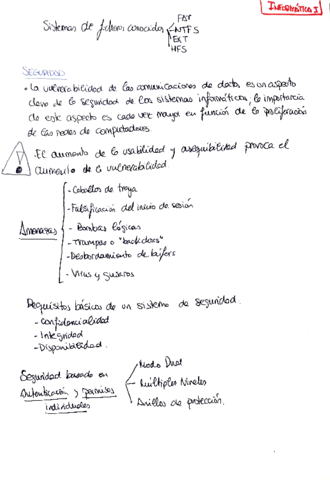 INFORMÁTICA I
FAT
Sistemas de ficheros conocidos NTFS
EXT
HFS
SEGURIDAD
• La vulnerabilidad de las comunicaciones de datos es un aspecto
clave de la seguridad de los sistemas informáticos, la importancia
de este aspecto es cada vez mayor en función de la proliferación
de las redes de computadores.
! El aumento de la usabilidad y asequibilidad provoca el
aumento de la vulnerabilidad.
Amenazas
- Caballos de troya
- Falsificación del inicio de sesión
- Bombas lógicas
- Trampas o "backdoors"
- Desbordamiento de búfers
- Virus y gusanos
Requisitos básicos de un sistema de seguridad.
- Confidencialidad
- Integridad
- Disponibilidad.
Seguridad basada en
Autenticación y permisos
individuales
- Modo Dual
- Múltiples Niveles
- Anillos de protección.